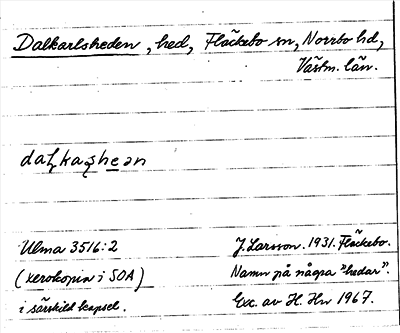 Dalkarlsheden, hed, Fläckebo sn, Norrbo hd,
Västm. län.
daꞎkaꞎheən
Ulma 3516:2
(xerokopia i SOA)
i särskild kapsel.
J. Larsson. 1931. Fläckebo.
Namn på några "hedar".
Exc. av H. Hn 1967.